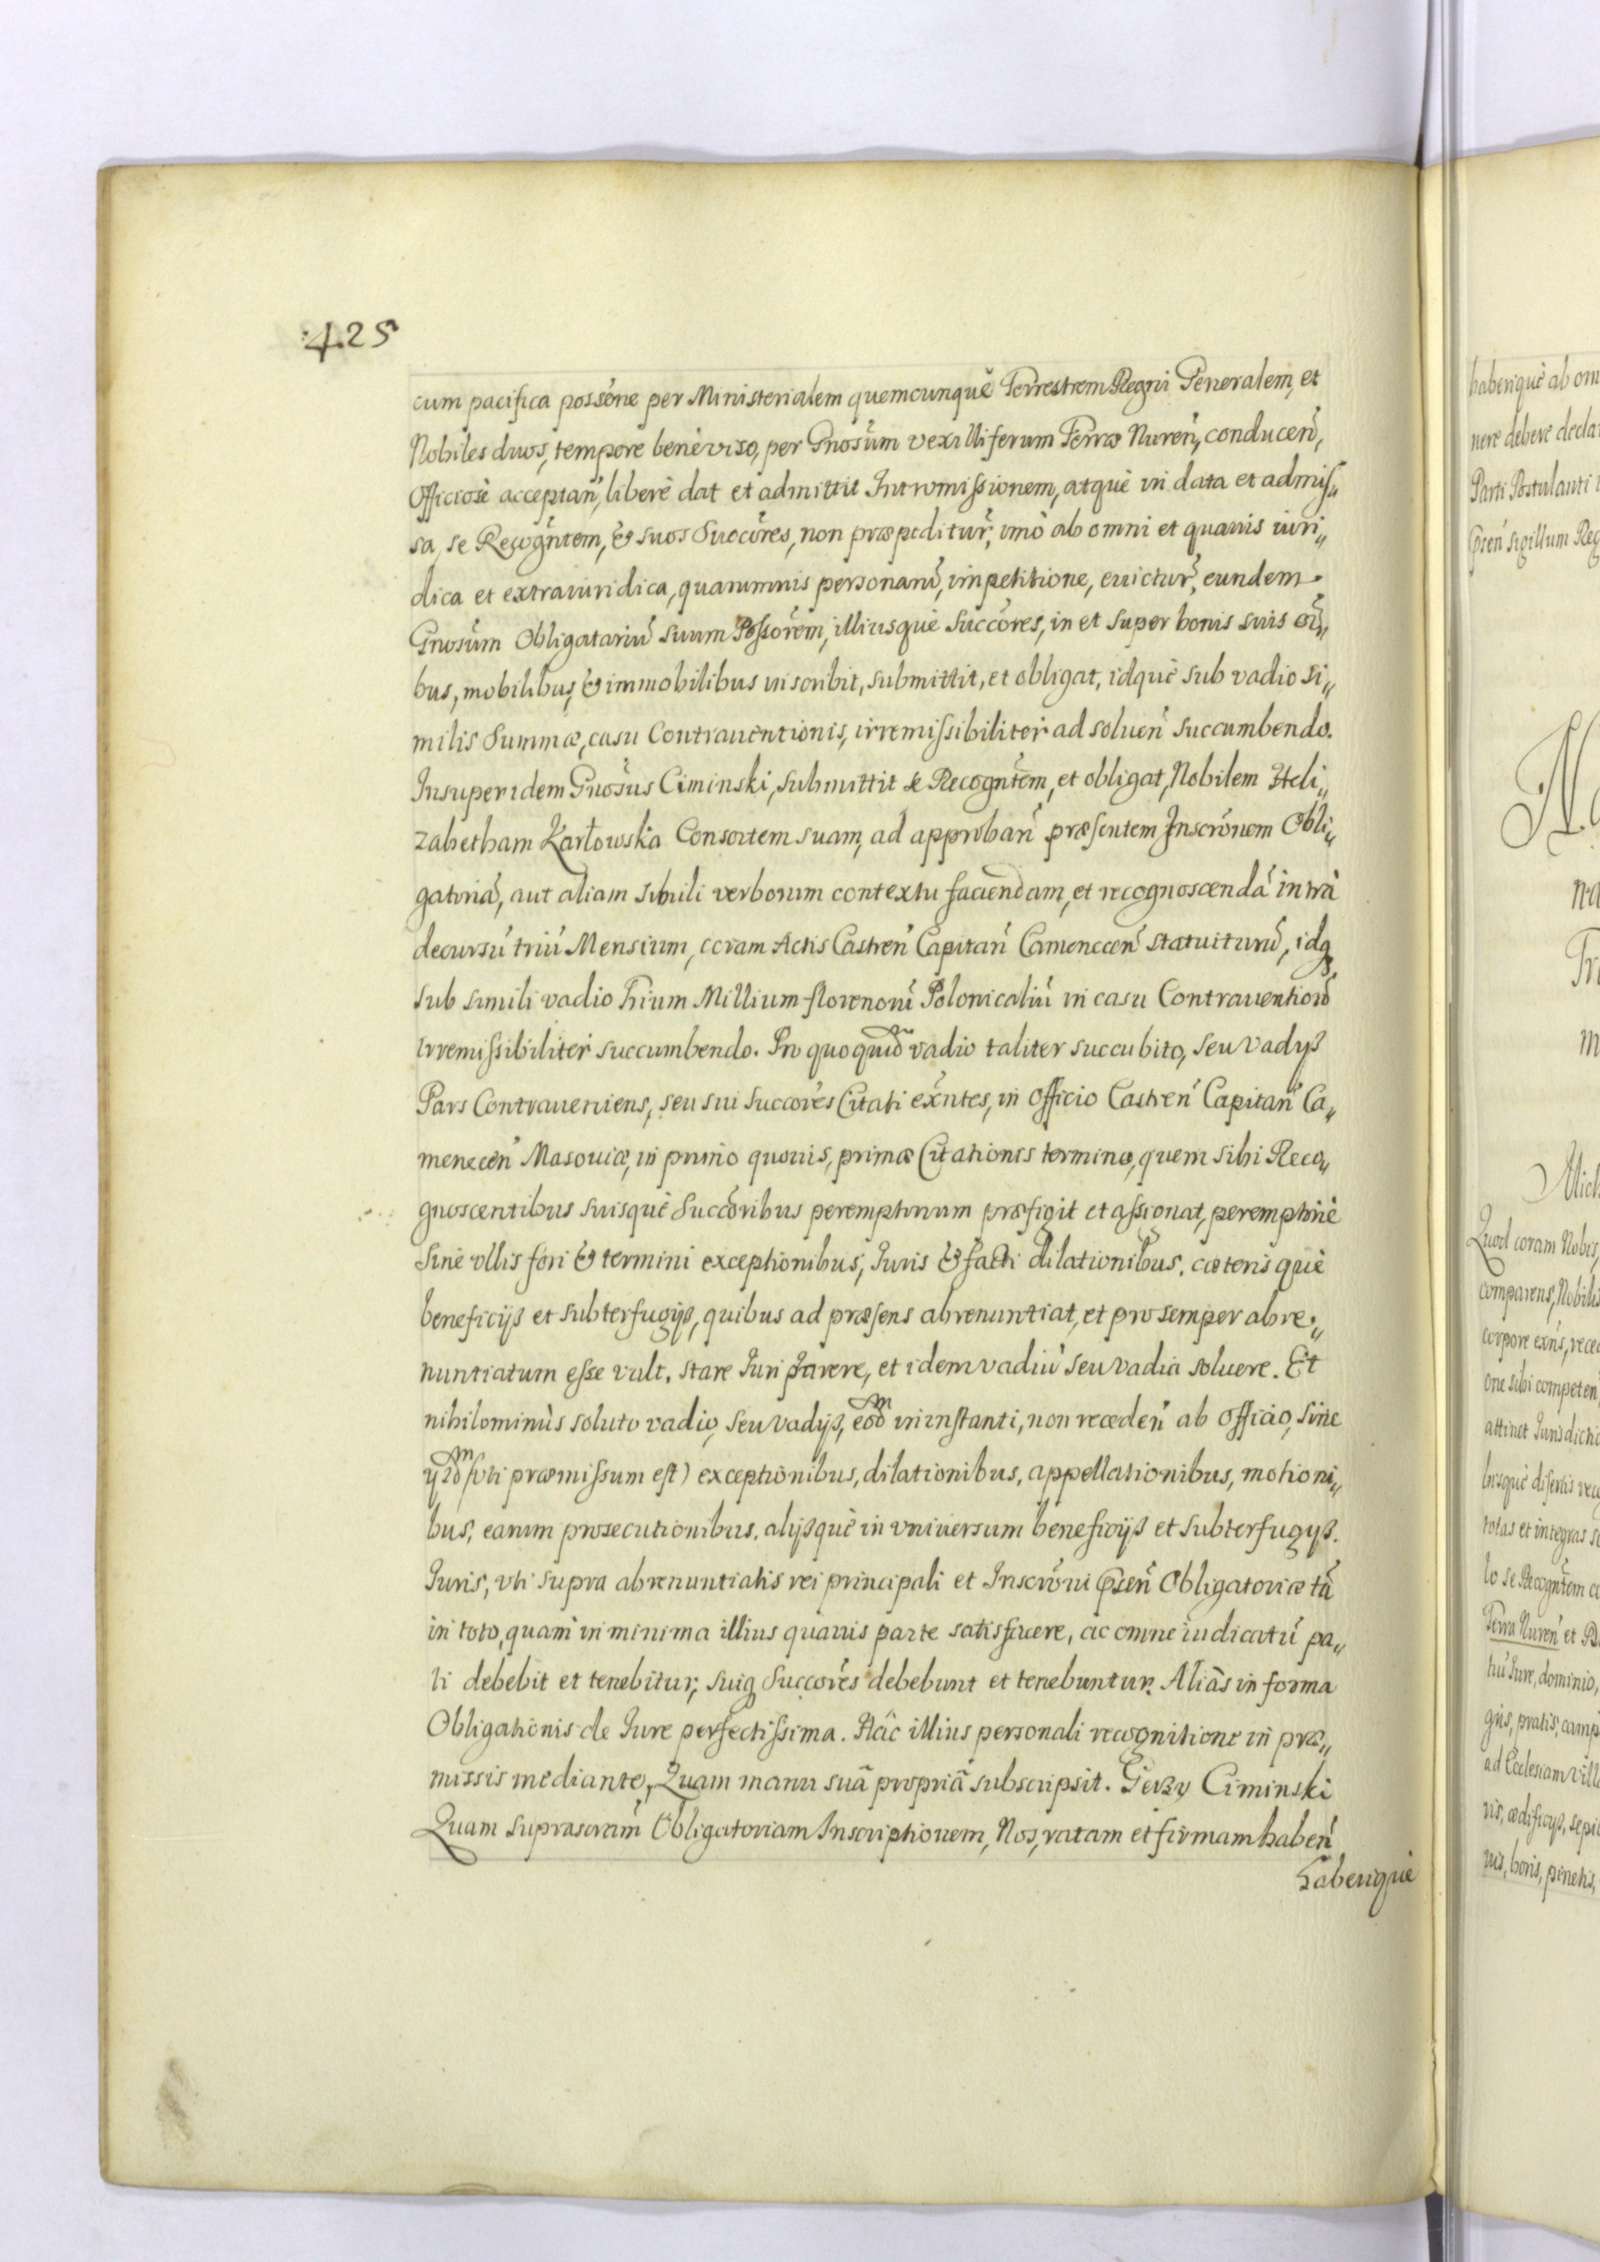 425
cum pacifica possẽne per Ministerialem quemcunquè Terrestrem Regni Generalem, et
Nobiles duos, tempore benèviso, per Gnosũm vexilliferum Terræ Nureñ, conduceñ,
Officiosè acceptañ, liberè dat et admittit Intromissionem, atquè in data et admis„
sa, se Recogñtem, & suos Succõres, non præpeditur̃, imò ab omni et quauis iuri„
dica et extraiuridica, quarumuis personarũ, impetitione, euictur̃, eundem
Gnosũm Obligatariũ suum Possõrem, illiusquè Succõres, in et super bonis suis oĩ„
bus, mobilibus, & immobilibus inscribit, submittit, et obligat, idquè sub vadio si„
milis Summæ, casu Contrauentionis, irremissibiliter ad soluen̄ succumbendo.
Insuper idem Gnosũs Ciminski, submittit se Recogñtem, et obligat, Nobilem Heli„
zabetham Karłowska Consortem suam, ad approbañ præsentem Inscrõnem Obli„
gatoriã, aut aliam simili verborum contextu faciendam, et recognoscendã intrà
decursũ triũ Mensium, coram Actis Castreñ Capitañ Camenecen̄ statuiturũ, idq̃
sub simili vadio Trium Millium florenorũ Polonicaliũ in casu Contrauentiõis
irremissibiliter succumbendo. Pro quo quid͠m vadio taliter succubito, seu vadijs
Pars Contraueniens, seu sui Succõres Citati exñtes, in Officio Castreñ Capitañ Ca„
menecen̄ Masouiæ, in primo quouis, primæ Citationis termino, quem sibi Reco„
gnoscentibus suisquè Succõribus peremptorium præfigit et assignat, peremptoriè
Sinè vllis fori & termini exceptionibus, Iuris & facti dilationibus, cæterisquè
beneficijs et subterfugijs, quibus ad præsens abrenuntiat, et pro semper abre„
nuntiatum esse vult, stare Iuri parere, et idem vadiũ seu vadia soluere. Et
nihilominùs soluto vadio, seu vadijs, eod͠m in instanti, non recedeñ ab Officio, sinè
ijsd͠m (vti præmissum est) exceptionibus, dilationibus, appellationibus, motioni„
bus, earum prosecutionibus, alijsquè in vniuersum beneficijs et subterfugijs
Iuris, vti supra abrenuntiatis rei principali et Inscrõni p̃señ Obligatoriæ tã
in toto, quam in minima illius quauis parte satisfacere, ac omne iudicatũ pa„
ti debebit et tenebitur, suiq̃ Succõres debebunt et tenebuntur. Aliàs in forma
Obligationis de Iure perfectissima. Hâc illius personali recognitione in præ„
missis mediante, Quam manu suâ propriâ subscripsit. Gerzy Ciminski
Quam suprascrãm Obligatoriam Inscriptionem, Nos, ratam et firmam habeñ
haberiquè